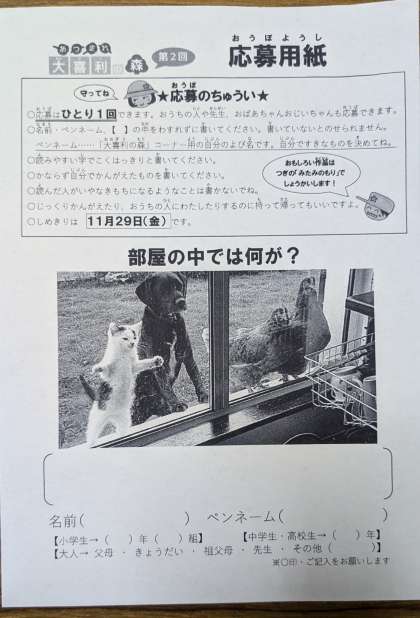 あつまれ
大喜利の森
第2回
おうぼようし
応募用紙
守ってね
★応募のちゅうい★
○応募はひとり1回できます。おうちの人や先生、おばあちゃんおじいちゃんも応募できます。
○名前・ペンネーム、【 】の中をわすれずに書いてください。書いていないとのせられません。
ペンネーム……「大喜利の森」コーナー用の自分のよび名です。自分ですきなものを決めてね。
○読みやすい字でこくはっきりと書いてください。
○かならず自分でかんがえたものを書いてください。
○読んだ人がいやなきもちになるようなことは書かないでね。
○じっくりかんがえたり、おうちの人にわたしたりするのに持って帰ってもいいですよ。
○しめきりは 11月29日(金) です。
おもしろい作品は
つぎの「みたみのもり」で
しょうかいします!
部屋の中では何が?
名前( ) ペンネーム( )
【小学生→( )年( )組】 【中学生・高校生→( )年】
【大人→ 父母 ・ きょうだい ・ 祖父母 ・ 先生 ・ その他( )】
※○印・ご記入をお願いします